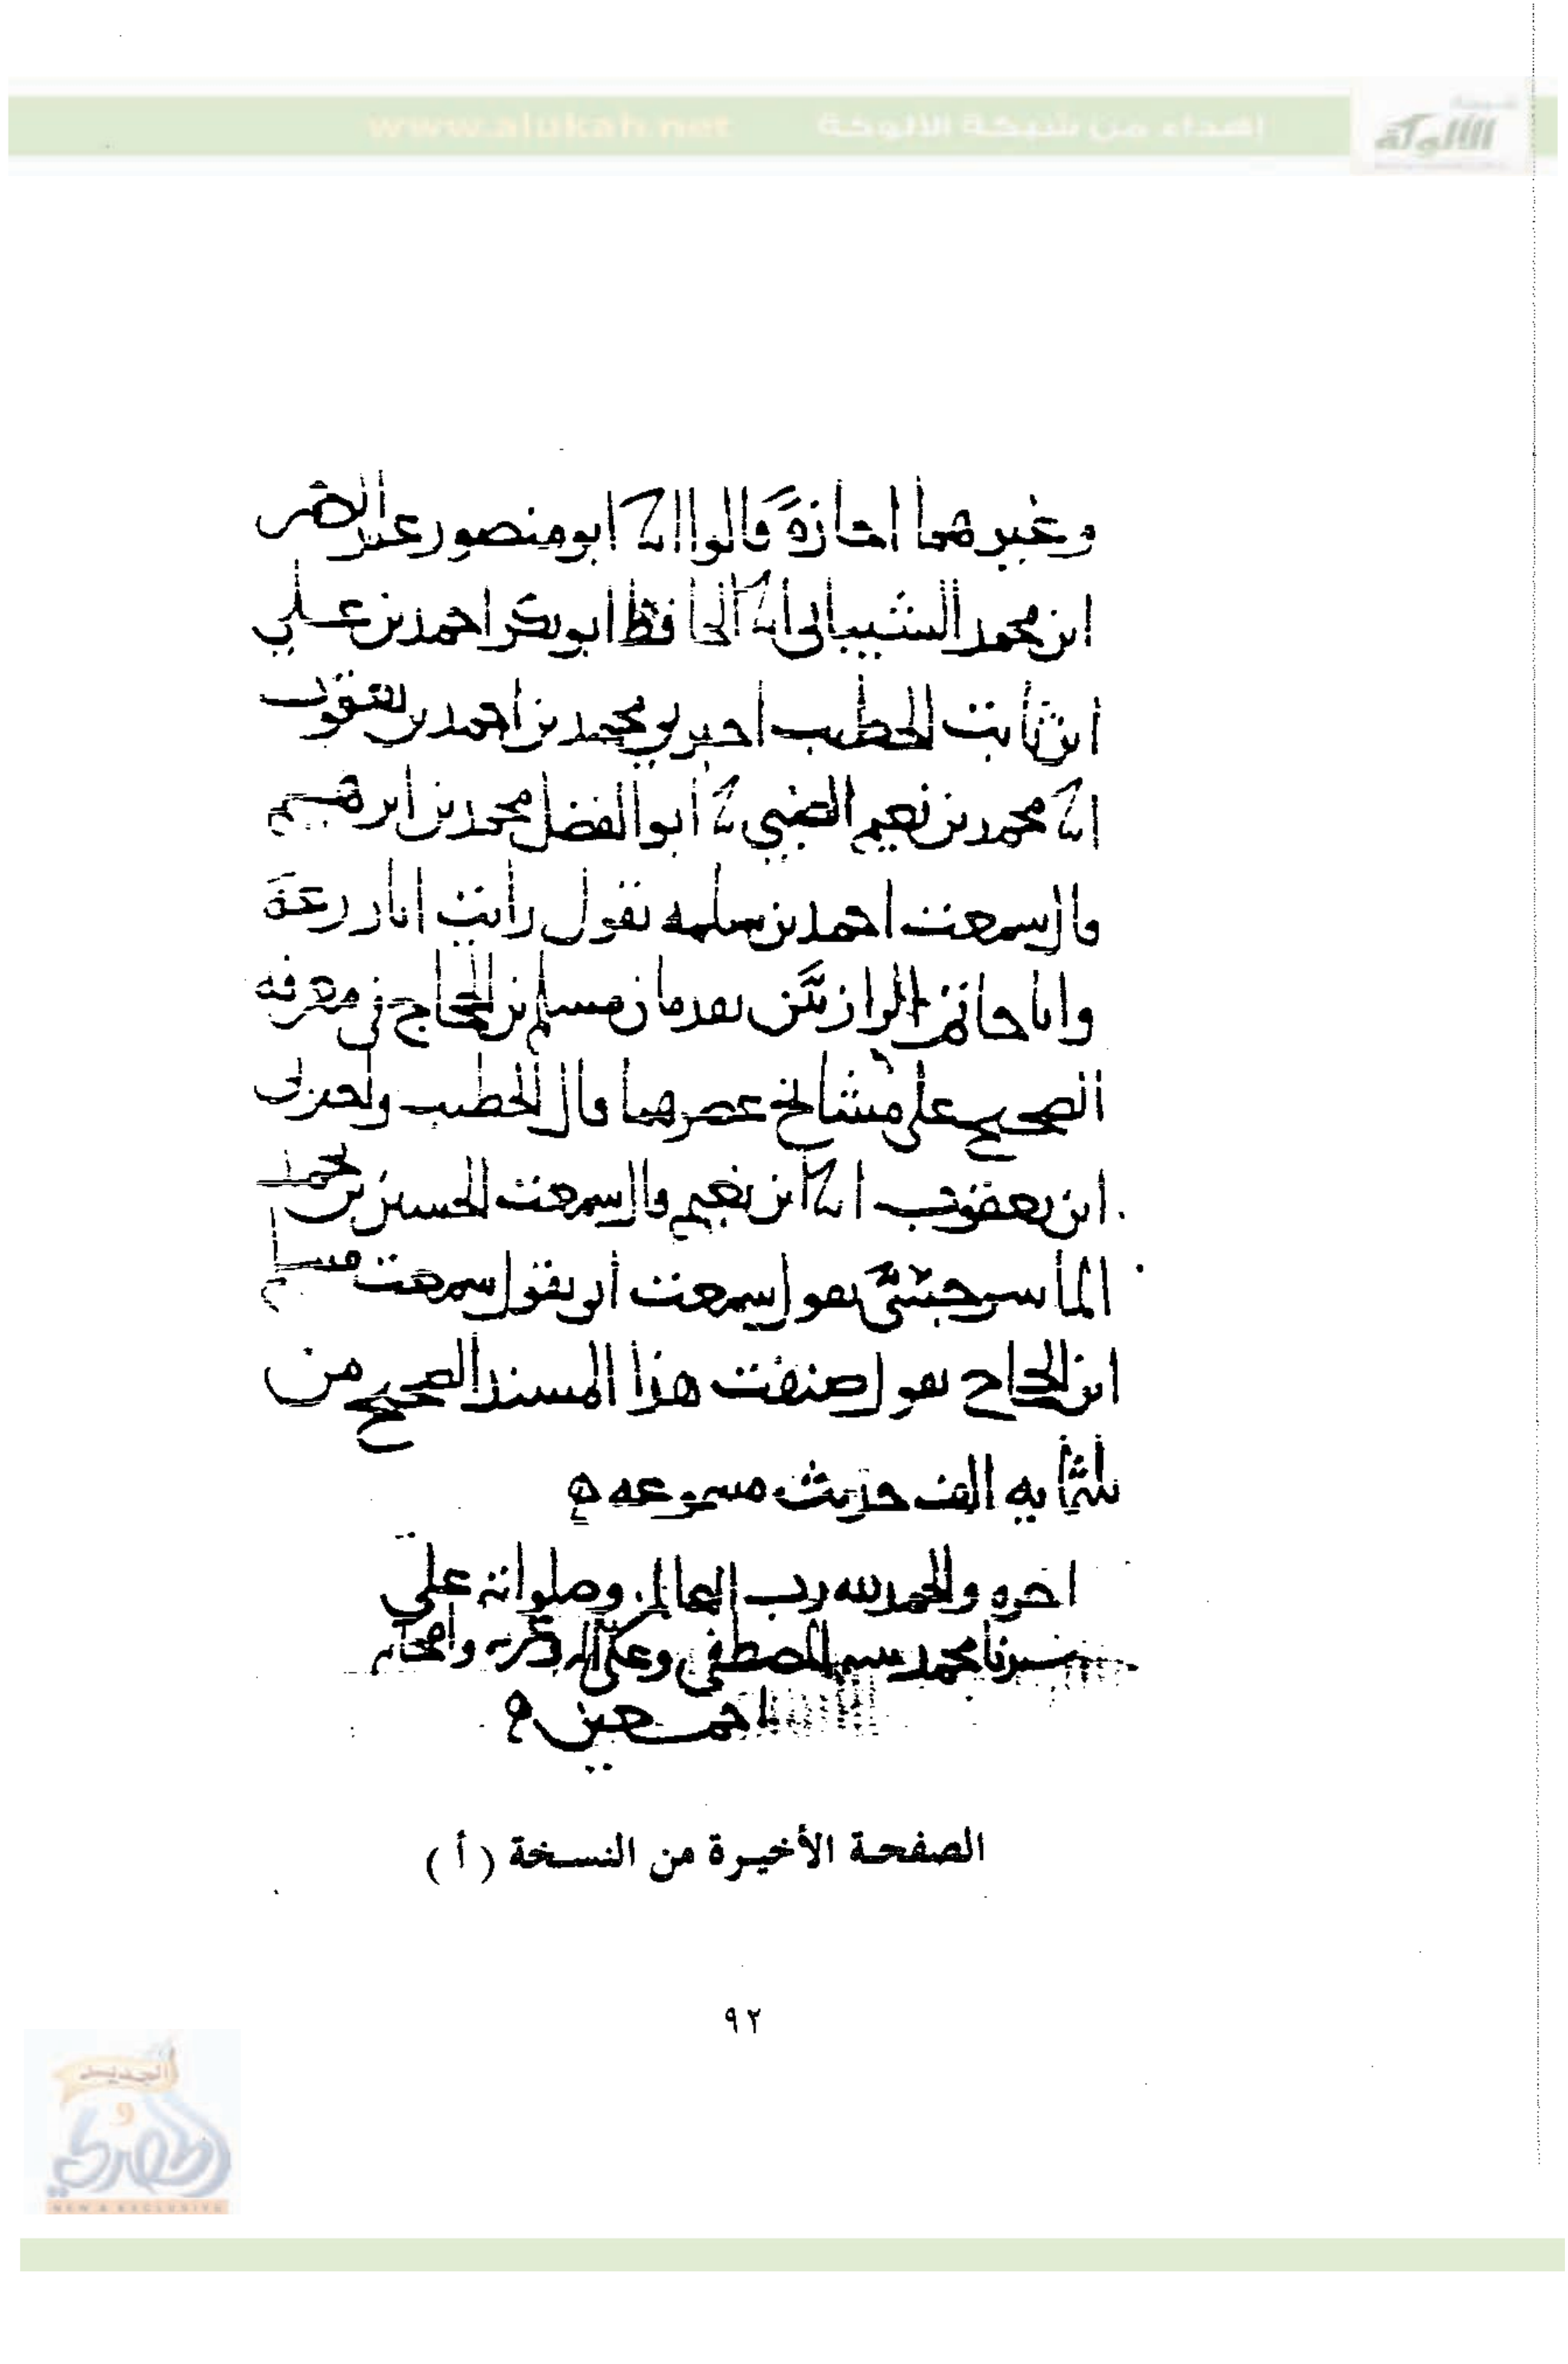 www.alukah.net إهداء من شبكة الألوكة
شبكة
الألوكة
وغيرهما اجازةً قالوا انا ابو منصور عبد الرحمن
ابن محمد الشيباني انا الحافظ ابو بكر احمد بن علي
ابن ثابت الخطيب اخبرني محمد بن احمد بن يعقوب
انا محمد بن نعيم الضبي نا أبو الفضل محمد بن ابرهيم
قال سمعت احمد بن سلمه يقول رأيت ابا زرعة
وابا حاتم الرازيَّين يقدمان مسلم بن الحجاج في معرفه
الصحيح على مشايخ عصرهما قال الخطيب واخبرني
ابن يعقوب انا ابن نعيم قال سمعت الحسين بن محمد
الماسرجسي يقول سمعت أبي يقول سمعت مسلم
ابن الحجاج يقول صنفت هذا المسند الصحيح من
ثلثمايه الف حديث مسموعه ه
اخره والحمد لله رب العالمين وصلواته على
سيدنا محمد المصطفى وعلى آله واصحابه
اجمعين ه
الصفحة الأخيرة من النسخة ( أ )
٩٢
الجديد
و
الحصري
NEW & EXCLUSIVE